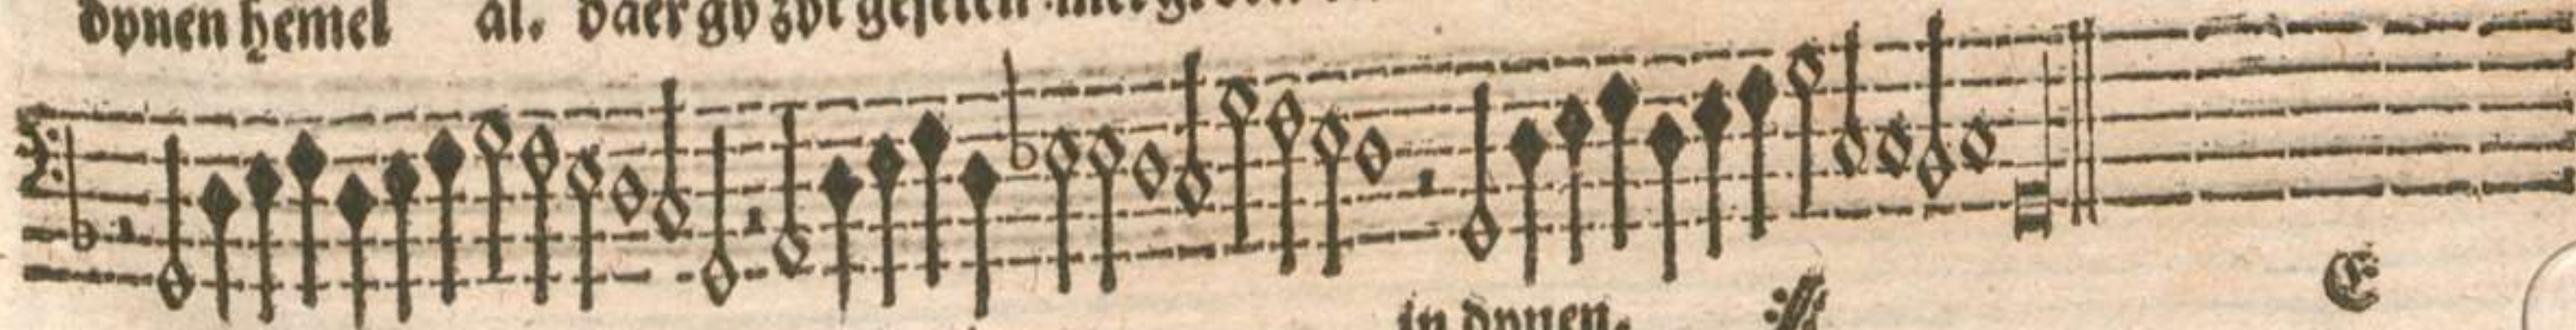 dynen hemel al. daer gy zyt geseten
in dynen.
E